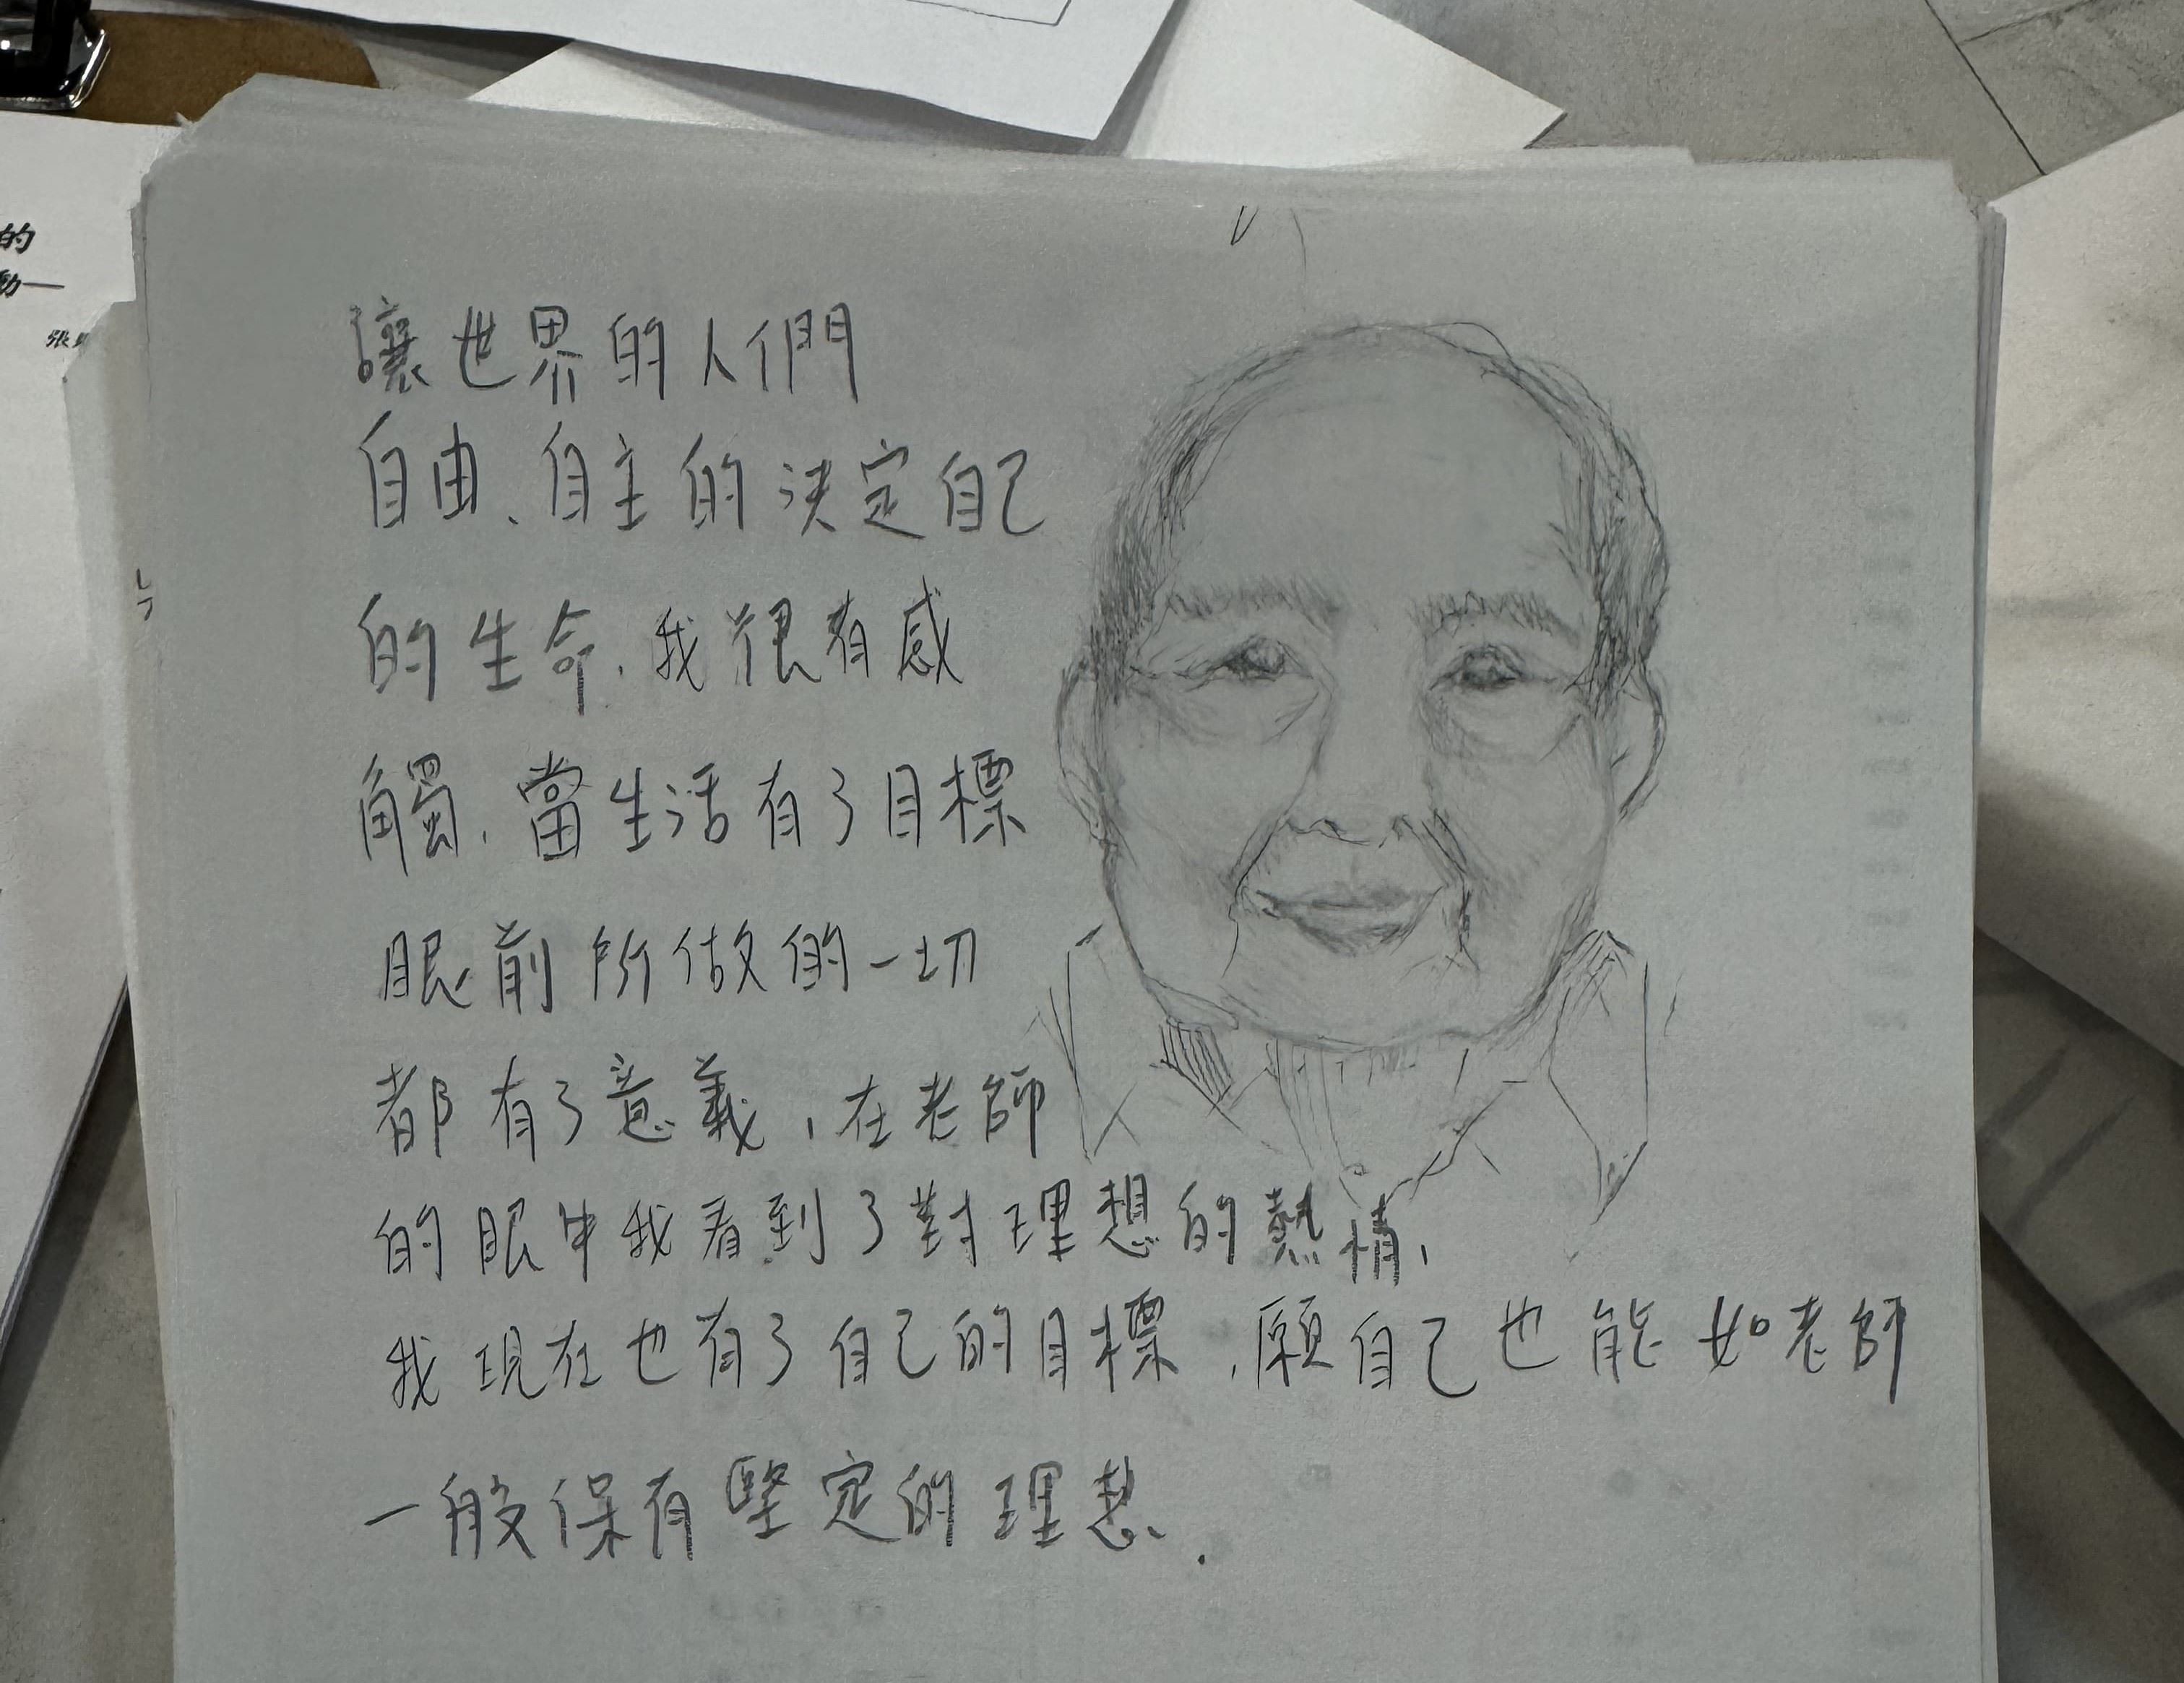 的
動—
張
讓世界的人們
自由、自主的決定自己
的生命，我很有感
觸，當生活有了目標
眼前所做的一切
都有了意義，在老師
的眼中我看到了對理想的熱情，
我現在也有了自己的目標，願自己也能如老師
一般保有堅定的理想.